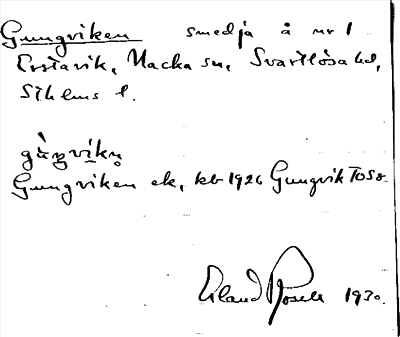 Gungviken smedja å nr 1
Erstavik, Nacka sn, Svartlösa hd,
Sthlms l.
gùŋvikn̥
Gungviken ek, kb 1926 Gungvik
Erland Rosell 1930.